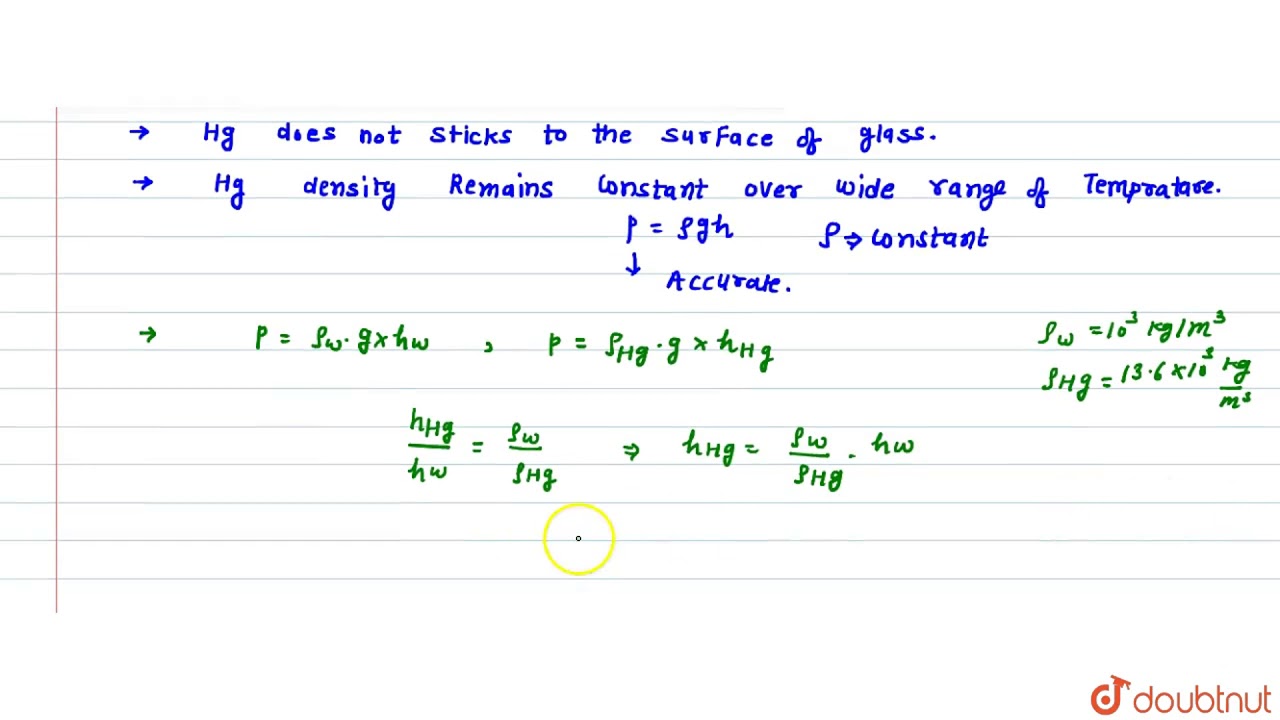 → Hg does not sticks to the surface of glass.
→ Hg density Remains constant over wide range of Tempratare.
P = ρgh ρ ⇒ constant
↓ Accurate.
→ P = ρw · g × hw , P = ρHg · g × hHg
ρw = 10³ kg/m³
ρHg = 13.6 × 10³ kg/m³
hHg/hw = ρw/ρHg ⇒ hHg = ρw/ρHg · hw
doubtnut